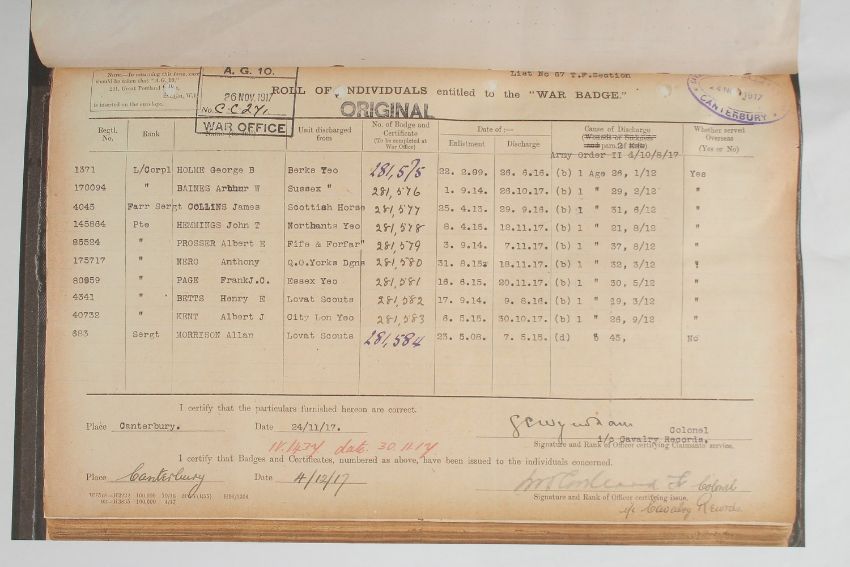 List No 67 T.F.Section
A. G. 10.
26 NOV. 1917
No. C.C.27.
WAR OFFICE
ROLL OF INDIVIDUALS entitled to the "WAR BADGE."
ORIGINAL
24 NOV 1917
CANTERBURY
Regtl. No. Rank Unit discharged from No. of Badge and Certificate (To be completed at War Office) Date of :— Enlistment. Discharge Cause of Discharge Army Order II 4/10/8/17 Whether served Overseas (Yes or No)
1371 L/Corpl HOLME George B Berks Yeo 281,575 22. 2.09. 26. 6.16. (b) 1 Age 26, 1/12 Yes
170094 " BAINES Arthur W Sussex " 281,576 1. 9.14. 26.10.17. (b) 1 " 29, 2/12 "
4045 Farr Sergt COLLINS James Scottish Horse 281,577 25. 4.13. 29. 9.16. (b) 1 " 31, 6/12 "
145864 Pte HEMMINGS John T Northants Yeo 281,578 8. 4.16. 12.11.17. (b) 1 " 21, 8/12 "
85524 " PROSSER Albert E Fife & Forfar" 281,579 3. 9.14. 7.11.17. (b) 1 " 37, 8/12 "
175717 " NERO Anthony Q.O.Yorks Dgns 281,580 31. 8.15. 18.11.17. (b) 1 " 32, 3/12 "
80959 " PAGE FrankJ.C. Essex Yeo 281,581 16. 6.15. 20.11.17. (b) 1 " 30, 5/12 "
4341 " BETTS Henry E Lovat Scouts 281,582 17. 9.14. 9. 8.16. (b) 1 " 19, 3/12 "
40732 " KENT Albert J City Lon Yeo 281,583 6. 5.15. 30.10.17. (b) 1 " 26, 9/12 "
683 Sergt MORRISON Allan Lovat Scouts 281,584 23. 5.08. 7. 5.15. (d) " 45, No
I certify that the particulars furnished hereon are correct.
Place Canterbury. Date 24/11/17.
Colonel
i/c Cavalry Records.
Signature and Rank of Officer certifying Claimants' service.
date 30.11.17
I certify that Badges and Certificates, numbered as above, have been issued to the individuals concerned.
Place Canterbury Date 4/12/17
Colonel
Signature and Rank of Officer certifying issue.
i/c Cavalry Records